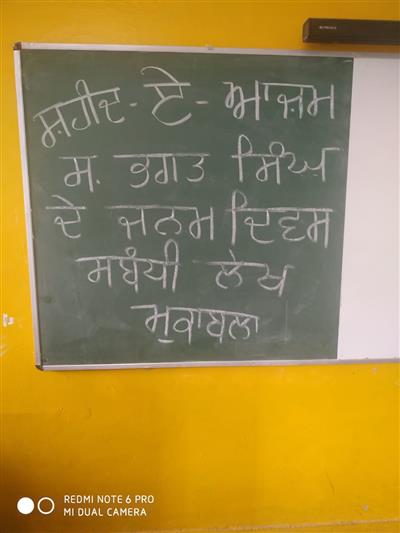 ਸ਼ਹੀਦ - ਏ - ਆਜ਼ਮ
ਸ. ਭਗਤ ਸਿੰਘ
ਦੇ ਜਨਮ ਦਿਵਸ
ਸਬੰਧੀ ਲੇਖ
ਮੁਕਾਬਲਾ
REDMI NOTE 6 PRO
MI DUAL CAMERA